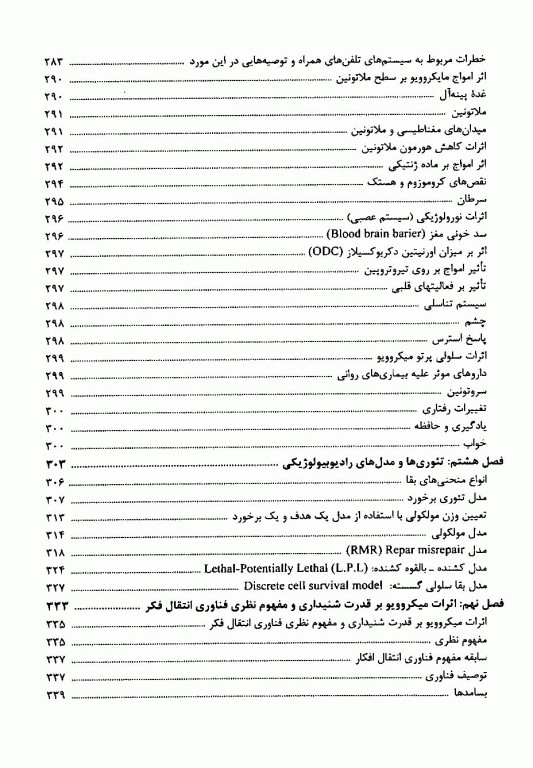 خطرات مربوط به سیستم‌های تلفن‌های همراه و توصیه‌هایی در این مورد ۲۸۳
اثر امواج مایکروویو بر سطح ملاتونین ۲۹۰
غدهٔ پینه‌آل ۲۹۰
ملاتونین ۲۹۱
میدان‌های مغناطیسی و ملاتونین ۲۹۱
اثرات کاهش هورمون ملاتونین ۲۹۲
اثر امواج بر ماده ژنتیکی ۲۹۲
نقص‌های کروموزوم و هستک ۲۹۴
سرطان ۲۹۵
اثرات نورولوژیکی (سیستم عصبی) ۲۹۶
سد خونی مغز (Blood brain barier) ۲۹۶
اثر بر میزان اورنیتین دکربوکسیلاز (ODC) ۲۹۷
تأثیر امواج بر روی تیروتروپین ۲۹۷
تأثیر بر فعالیتهای قلبی ۲۹۷
سیستم تناسلی ۲۹۸
چشم ۲۹۸
پاسخ استرس ۲۹۸
اثرات سلولی پرتو میکروویو ۲۹۹
داروهای موثر علیه بیماری‌های روانی ۲۹۹
سروتونین ۲۹۹
تغییرات رفتاری ۳۰۰
یادگیری و حافظه ۳۰۰
خواب ۳۰۰
فصل هشتم: تئوری‌ها و مدل‌های رادیوبیولوژیکی ۳۰۳
انواع منحنی‌های بقا ۳۰۶
مدل تئوری برخورد ۳۰۷
تعیین وزن مولکولی با استفاده از مدل یک هدف و یک برخورد ۳۱۳
مدل مولکولی ۳۱۴
مدل RMR) Repar misrepair) ۳۱۸
مدل کشنده ـ بالقوه کشنده: Lethal-Potentially Lethal (L.P.L) ۳۲۴
مدل بقا سلولی گسسته: Discrete cell survival model ۳۲۷
فصل نهم: اثرات میکروویو بر قدرت شنیداری و مفهوم نظری فناوری انتقال فکر ۳۳۳
اثرات میکروویو بر قدرت شنیداری و مفهوم نظری فناوری انتقال فکر ۳۳۵
مفهوم نظری ۳۳۵
سابقه مفهوم فناوری انتقال افکار ۳۳۷
توصیف فناوری ۳۳۷
بسامدها ۳۳۹